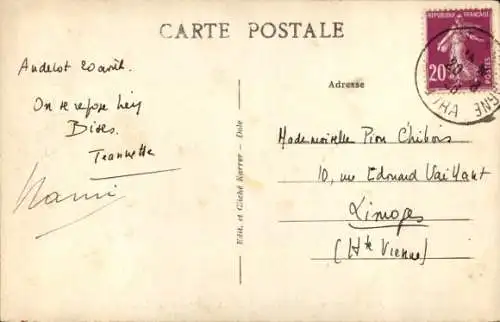 CARTE POSTALE
REPUBLIQUE FRANÇAISE
20
POSTES
Andelot 20 avril.
On se repose bien
Bises.
Jeannette
Adresse
Edit. et Cliché Karrer - Dole
Mademoiselle Pion Chibois
10, rue Edouard Vaillant
Limoges
(Hte Vienne)